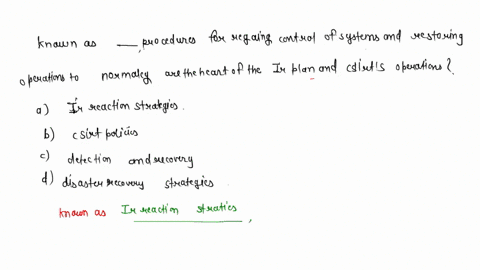 known as ___, procedures for regaing control of systems and restoring
operations to normalcy are the heart of the Ir plan and csirt's operations?
a) Ir reaction strategis.
b) csirt policies
c) detection and recovery
d) disaster recovery strategies.
known as Ir reaction straties,